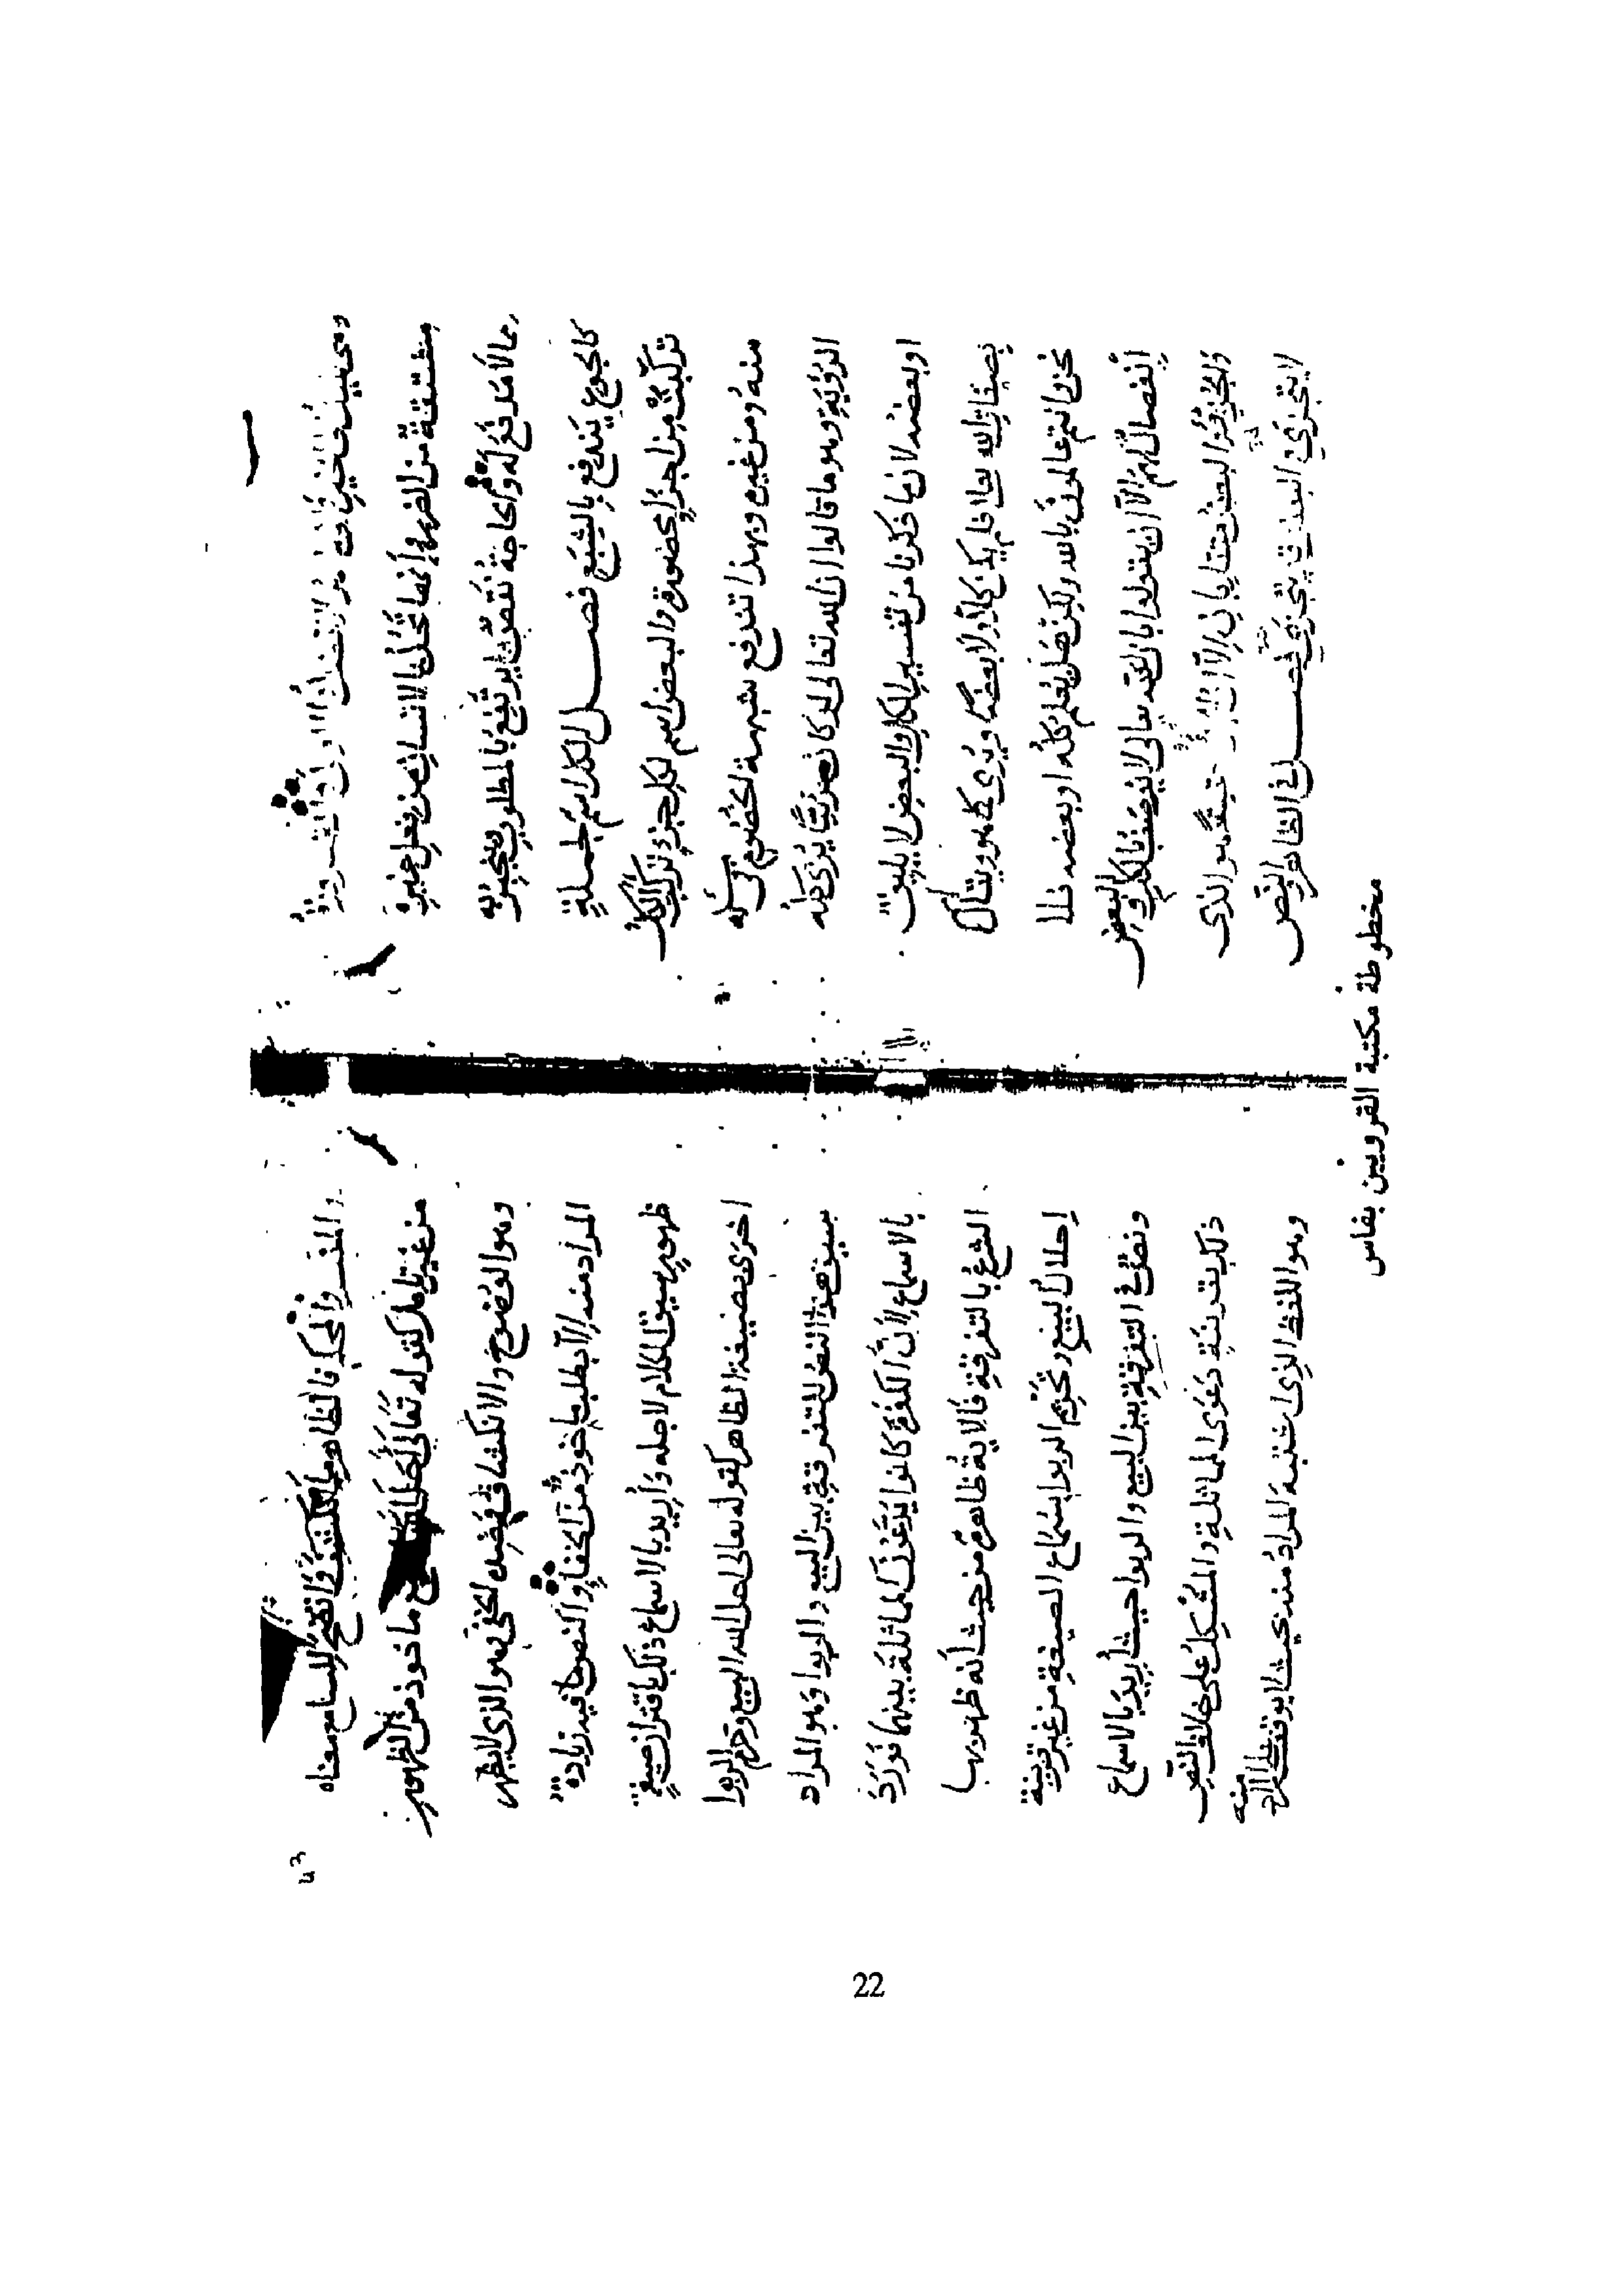 ومحيين
مشتقة من الضر وإنما تحل بالانسان من فعل غيره
مما لا مدفع له والحاجة نقص يرتفع بالمطلوب وينجبر به
كالجوع يندفع بالشبع فصل الكل اسم لجملة
تركبت من اجزاء محصورة والبعض اسم لكل جزء تركب الكل
منه ومن غيره وبهذا تندفع شبهة الخصوم في مسألة
الرؤية وهو ما قالوا ان الله تعالى لو كان مرئيا يرى كله
او بعضه لان ما ذكرنا من تفسير الكل والبعض لا يليق
بصفات الله تعالى فلم يكن كلا ولا بعضا ويرى كما هو ويقال
نحن وانتم عالمون بالله ولكن هل يعلم كله او بعضه فلا
انفصال لهم الا ان يقولوا بان الله تعالى لا يوصف بالكل والبعض
والجزء البعض هو الذي
لا يتجزى فصل في الظاهر والنص
والمفسر والمحكم فالظاهر ما انكشف واتضح للسامع معناه
من غير تامل كقوله تعالى احل الله البيع ماخوذ من الظهور
وهو الوضوح والانكشاف وضده الخفي وهو الذي لا يظهر
المراد منه الا بطلب ماخوذ من الخفاء والنص ما فيه زيادة
ظهور سيق الكلام لاجله وأريد بالاسماع ذلك باقتران صيغة
اخرى بصيغة الظاهر كقوله تعالى احل الله البيع وحرم الربوا
سيق هذا النص للتفرقة بين البيع والربوا وهو المراد
بالاسماع لأن الكفرة كانوا يدعون المماثلة بينهما فورد
الشرع بالتفرقة فالاية ظاهرة من حيث أنه ظهر بها
إحلال البيع وتحريم الربوا بسماع الصيغة من غير قرينة
ونص في التفرقة بين البيع والربوا حيث أريد بالاسماع
ذلك بقرينة دعوى المماثلة والمشكل على خلاف النص
وهو اللفظ الذي اشتبه المراد منه بحيث لا يوقف على المراد منه
مخطوطة مكتبة القرويين بفاس
22